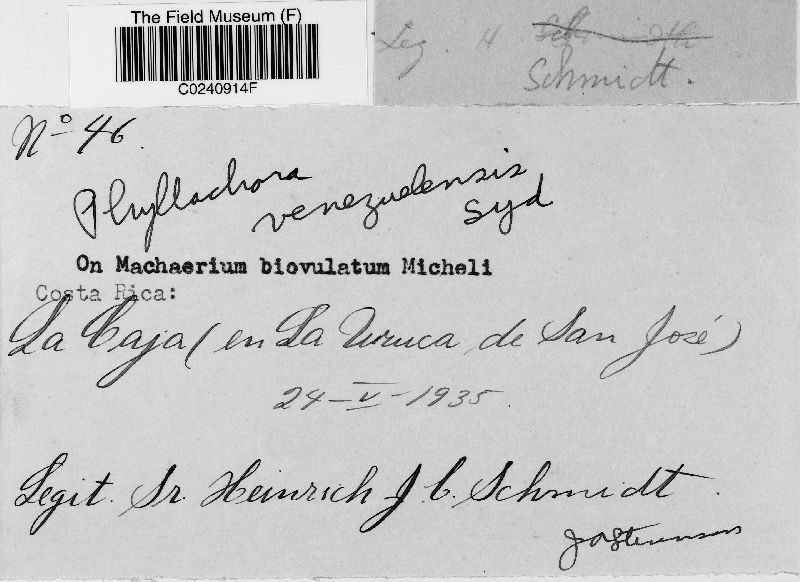 The Field Museum (F)
C0240914F
Leg. H
Schmidt.
Nº 46
Phyllachora
venezuelensis
Syd
On Machaerium biovulatum Micheli
Costa Rica:
La Caja (en La Uruca de San José)
24-V-1935.
Legit. Sr. Heinrich J C. Schmidt.
JAStevenson